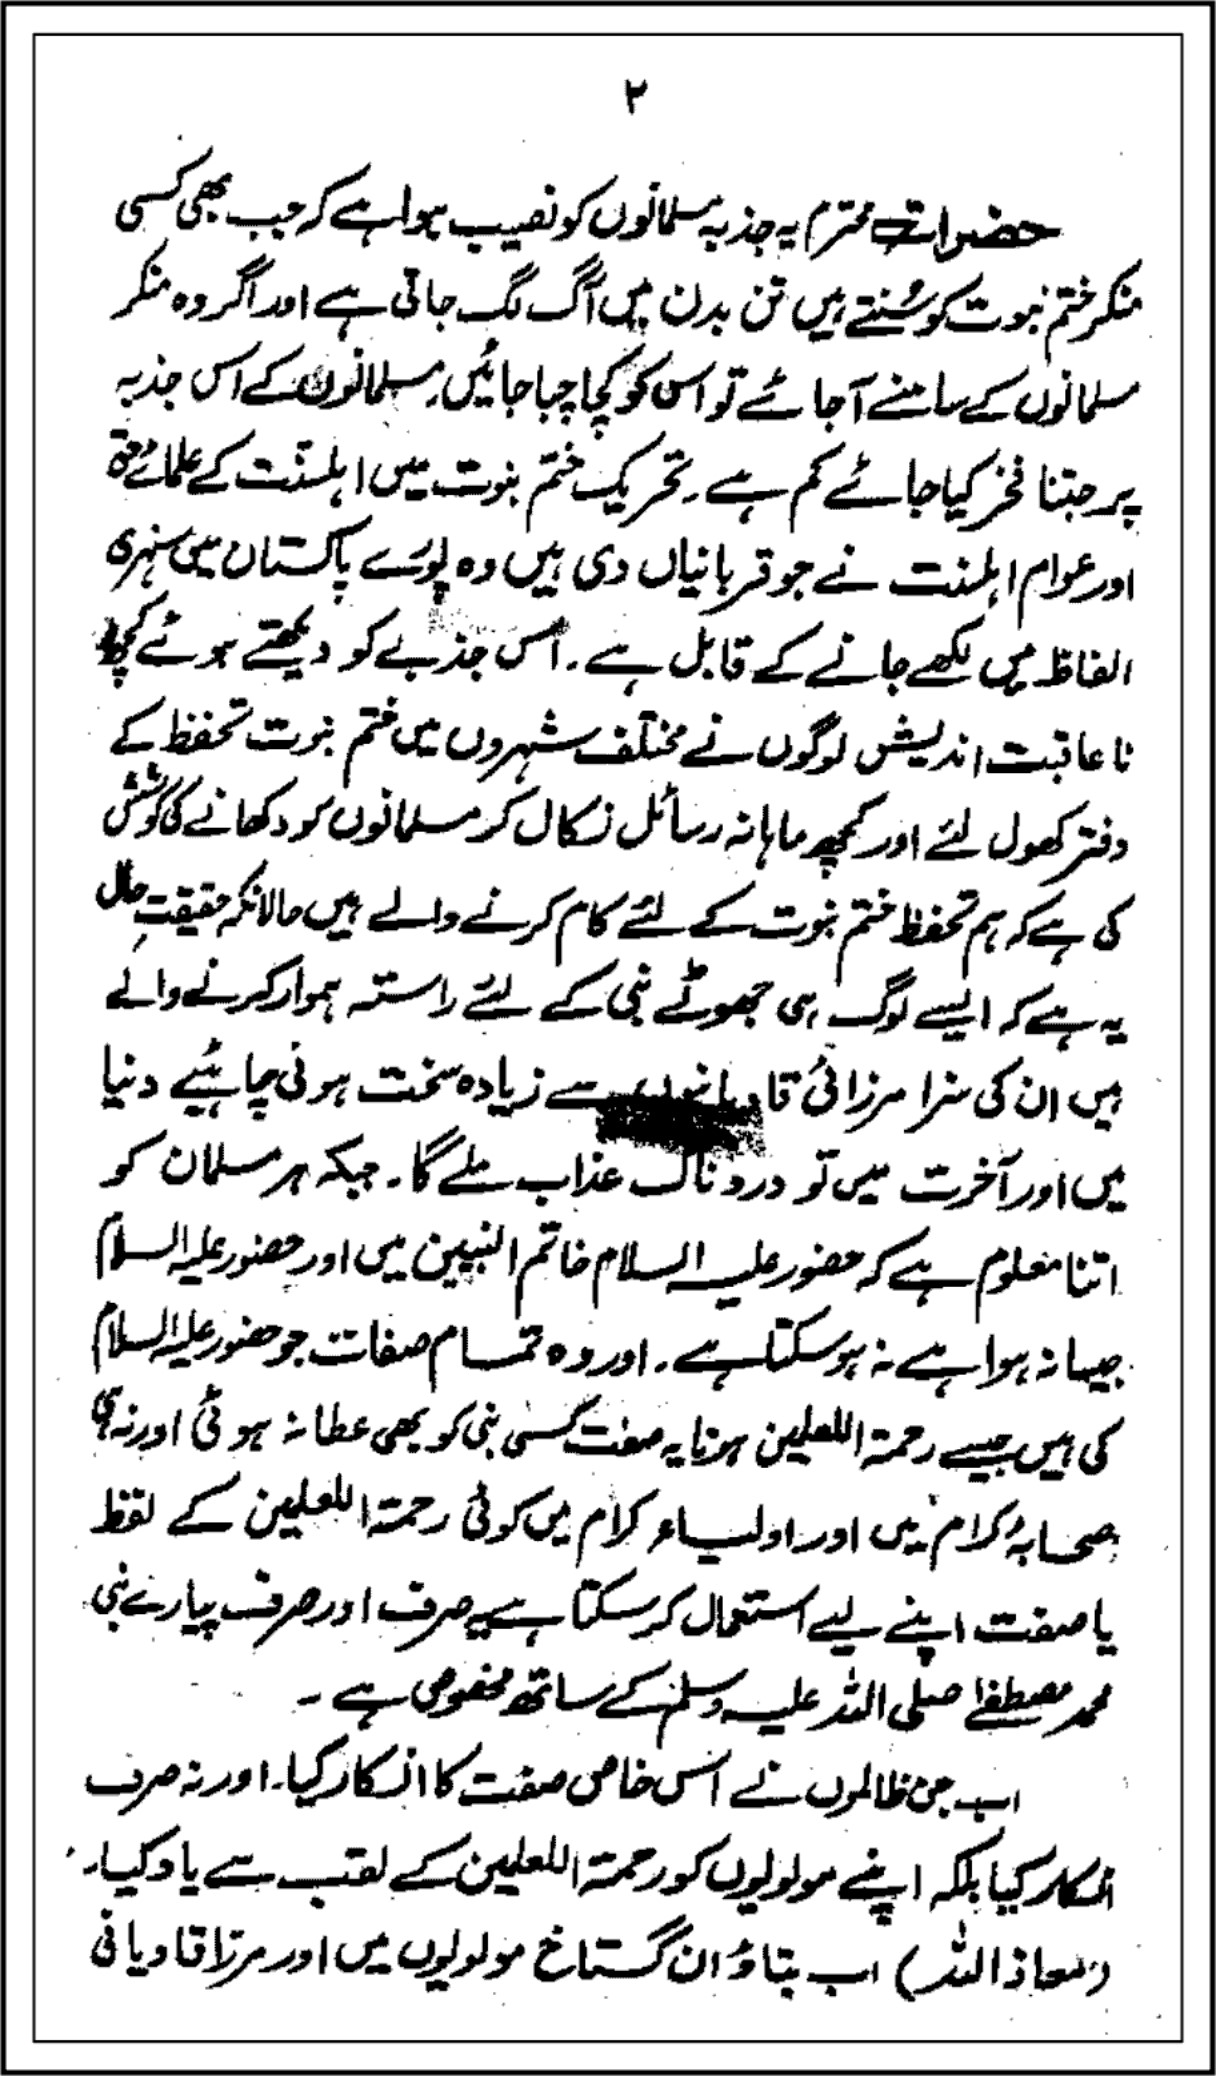 ۲
حضرات محترم یہ جذبہ مسلمانوں کو نصیب ہوا ہے کہ جب بھی کسی
منکر ختم نبوت کو سُنتے ہیں تن بدن میں آگ لگ جاتی ہے اور اگر وہ منکر
مسلمانوں کے سامنے آجائے تو اس کو کچا چبا جائیں۔ مسلمانوں کے اس جذبہ
پر جتنا فخر کیا جائے کم ہے۔ تحریک ختم نبوت میں اہلسنّت کے علمائے حق
اور عوام اہلسنت نے جو قربانیاں دی ہیں وہ پورے پاکستان میں سنہری
الفاظ میں لکھے جانے کے قابل ہے۔ اس جذبے کو دیکھتے ہوئے کچھ
نا عاقبت اندیش لوگوں نے مختلف شہروں میں ختم نبوت تحفظ کے
دفتر کھول لئے اور کچھ ماہانہ رسائل نکال کر مسلمانوں کو دکھانے کی کوشش
کی ہے کہ ہم تحفظ ختم نبوت کے لئے کام کرنے والے ہیں حالانکہ حقیقتِ حال
یہ ہے کہ ایسے لوگ ہی جھوٹے نبی کے لئے راستہ ہموار کرنے والے
ہیں ان کی سزا مرزائی قادیانیوں سے زیادہ سخت ہونی چاہیٔے دنیا
میں اور آخرت میں تو دردناک عذاب ملے گا۔ جبکہ ہر مسلمان کو
اتنا معلوم ہے کہ حضور علیہ السلام خاتم النبیین ہیں اور حضور علیہ السلام
جیسا نہ ہوا ہے نہ ہو سکتا ہے۔ اور وہ تمام صفات جو حضور علیہ السلام
کی ہیں جیسے رحمۃ اللعلمین ہونا یہ صفت کسی نبی کو بھی عطا نہ ہوئی اور نہ ہی
صحابۂ کرام میں اور اولیاء کرام میں کوئی رحمۃ اللعلمین کے لفظ
یا صفت اپنے لیے استعمال کر سکتا ہے یہ صرف اور صرف پیارے نبی
محمد مصطفےٰ صلی اللہ علیہ وسلم کے ساتھ مخصوص ہے ۔
اب جن ظالموں نے اس خاص صفت کا انکار کیا۔ اور نہ صرف
انکار کیا بلکہ اپنے مولویوں کو رحمۃ اللعلمین کے لقب سے یاد کیا۔
(معاذ اللہ) اب بتاؤ ان گستاخ مولویوں میں اور مرزا قادیانی